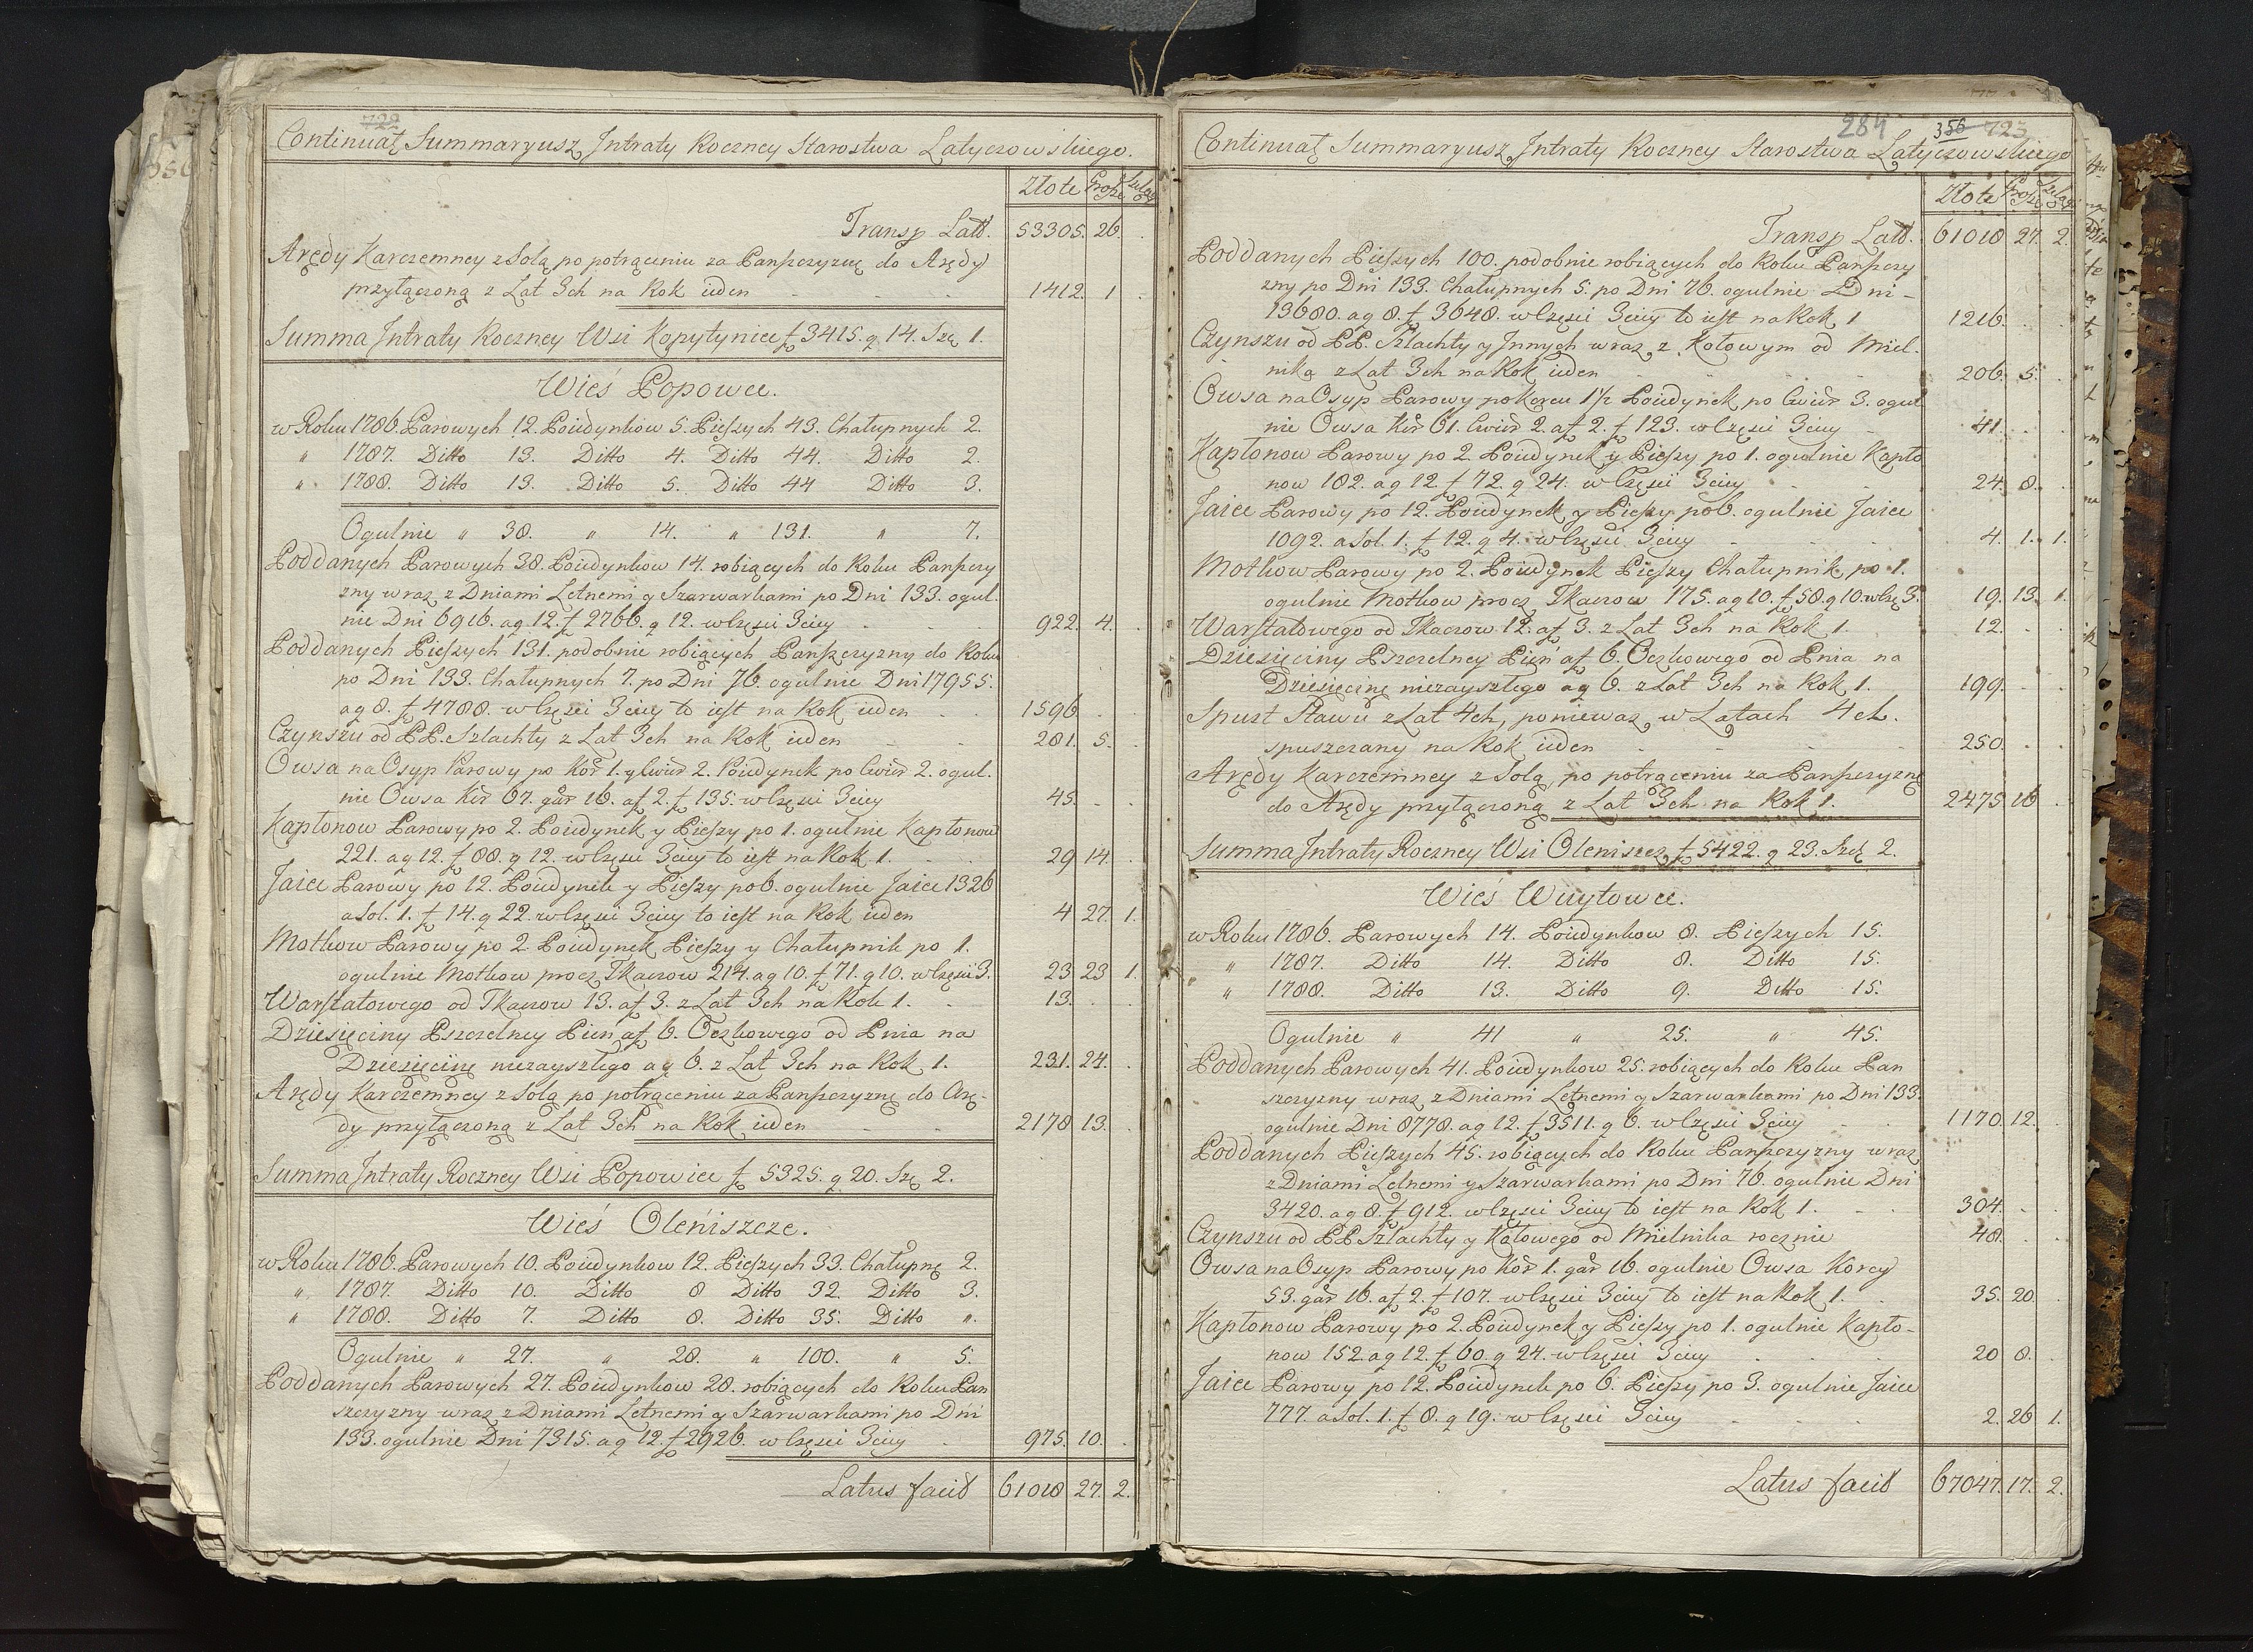 722
Continuat Summaryusz Jntraty Roczney Starostwa Latyczowskiego.
Złote Grosze Szelągi
Transp Latt. 53305. 26.
Arędy Karczemney z Solą po potrąceniu za Panszczyznę do Arędy
przyłączoną z Lat 3ch na Rok ieden 1412. 1
Summa Jntraty Roczney Wsi Kopytynice f 3415. g 14. Szę 1.
Wieś Popowce.
w Roku 1786. Parowych 12. Poiedynkow 5. Pieszych 43. Chałupnych 2.
" 1787. Ditto 13. Ditto 4. Ditto 44. Ditto 2.
" 1788. Ditto 13. Ditto 5. Ditto 44 Ditto 3.
Ogulnie " 38. " 14. " 131. " 7.
Poddanych Parowych 38. Poiedynkow 14. robiących do Roku Panszczy
zny wraz z Dniami Letnemi y Szarwarkami po Dni 133. ogul.
nie Dni 6916. ag 12. f 2766. g 12. w Części 3ciey 922. 4.
Poddanych Pieszych 131. podobnie robiących Panszczyzny do Roku
po Dni 133. Chałupnych 7. po Dni 76. ogulnie Dni 17955.
ag 8. f 4788. w Części 3ciey to iest na Rok ieden 1596
Czynszu od PP. Szlachty z Lat 3ch na Rok ieden 281. 5.
Owsa na Osyp Parowy po Kor 1. y Cwier 2. Poiedynek po Cwier 2. ogul.
nie Owsa Kor 67. gar 16. af 2. f 135. w Części 3ciey 45.
Kapłonow Parowy po 2. Poiedynek y Pieszy po 1. ogulnie Kapłonow
221. ag 12. f 88. g 12. w Części 3ciey to iest na Rok 1. 29 14.
Jaiec Parowy po 12. Poiedynek y Pieszy po 6. ogulnie Jaiec 1326
a Sol. 1. f 14. g 22. w Części 3ciey to iest na Rok ieden 4 27. 1.
Motkow Parowy po 2. Poiedynek Pieszy y Chałupnik po 1.
ogulnie Motkow procz Tkaczow 214. ag 10. f 71. g 10. w Części 3. 23 23 1.
Warstatowego od Tkaczow 13. af 3. z Lat 3ch na Rok 1. 13.
Dziesięciny Pszczelney Pień af 6. Oczkowego od Pnia na
Dziesięcinę niezayszłego ag 6. z Lat 3ch na Rok 1. 231. 24.
Arędy Karczemney z Solą po potrąceniu za Panszczyznę do Arę-
dy przyłączoną z Lat 3ch na Rok ieden 2178 13.
Summa Jntraty Roczney Wsi Popowice f 5325. g 20. Szę 2.
Wieś Oleniszcze.
w Roku 1786. Parowych 10. Poiedynkow 12. Pieszych 33. Chałupnę 2.
" 1787. Ditto 10. Ditto 8 Ditto 32. Ditto 3.
" 1788. Ditto 7. Ditto 8. Ditto 35. Ditto ".
Ogulnie " 27. " 28. " 100. " 5.
Poddanych Parowych 27. Poiedynkow 28. robiących do Roku Pan
szczyzny wraz z Dniami Letnemi y Szarwarkami po Dni
133. ogulnie Dni 7315. ag 12. f 2926. w Części 3ciey 975. 10.
Latus facit 61018 27. 2.
284 356 723
Continuat Summaryusz Jntraty Roczney Starostwa Latyczowskiego
Złote Grosze Szelągi
Transp Latt. 61018 27. 2.
Poddanych Pieszych 100. podobnie robiących do Roku Panszczy
zny po Dni 133. Chałupnych 5. po Dni 76. ogulnie Dni-
13680. ag 8. f 3648. w Części 3ciey to iest na Rok 1 1216.
Czynszu od PP. Szlachty y Jnnych wraz z Kołowym od Miel.
nika z Lat 3ch na Rok ieden 206. 5.
Owsa na Osyp Parowy po Korcu 1 1/2 Poiedynek po Cwier 3. ogul
nie Owsa Kor 61. Cwier 2. af 2. f 123. w Części 3ciey 41.
Kapłonow Parowy po 2. Poiedynek y Pieszy po 1. ogulnie Kapło
now 182. ag 12 f 72. g 24. w Części 3ciey 24. 8.
Jaiec Parowy po 12. Poiedynek y Pieszy po 6. ogulnie Jaiec
1092. a Sol. 1. f 12. g 4. w Części 3ciey 4. 1. 1.
Motkow Parowy po 2. Poiedynek Pieszy Chałupnik po 1.
ogulnie Motkow procz Tkaczow 175. ag 10. f 58. g 10. w Częś 3. 19. 13. 1.
Warstatowego od Tkaczow 12. af 3. z Lat 3ch na Rok 1. 12.
Dziesięciny Pszczelney Pień af 6. Oczkowego od Pnia na
Dziesięcinę niezayszłego ag 6. z Lat 3ch na Rok 1. 199.
Spust Stawu z Lat 4ch, poniewaz w Latach 4ch.
spuszczany na Rok ieden 250.
Arędy Karczemney z Solą po potrąceniu za Panszczyznę
do Arędy przyłączoną z Lat 3ch na Rok 1. 2475 16
Summa Jntraty Roczney Wsi Oleniszcz f 5422. g 23. Szę 2.
Wieś Wuytowce.
w Roku 1786. Parowych 14. Poiedynkow 8. Pieszych 15.
" 1787. Ditto 14. Ditto 8. Ditto 15.
" 1788. Ditto 13. Ditto 9. Ditto 15.
Ogulnie " 41 " 25. " 45.
Poddanych Parowych 41. Poiedynkow 25. robiących do Roku Pan
szczyzny wraz z Dniami Letnemi y Szarwarkami po Dni 133.
ogulnie Dni 8778. ag 12. f 3511. g 6. w Części 3ciey 1170. 12.
Poddanych Pieszych 45. robiących do Roku Panszczyzny wraz
z Dniami Letnemi y Szarwarkami po Dni 76. ogulnie Dni
3420. ag 8. f 912. w Części 3ciey to iest na Rok 1. 304.
Czynszu od PP Szlachty y Kołowego od Mielnika rocznie 48.
Owsa na Osyp Parowy po Kor 1. gar 16. ogulnie Owsa Korcy
53. gar 16. af 2. f 107. w Części 3ciey to iest na Rok 1. 35. 20.
Kapłonow Parowy po 2. Poiedynek y Pieszy po 1. ogulnie Kapło-
now 152. ag 12. f 60. g 24. w Części 3ciey 20 8.
Jaiec Parowy po 12. Poiedynek po 6. Pieszy po 3. ogulnie Jaiec
777. a Sol. 1. f 8. g 19. w Części 3ciey 2. 26 1.
Latus facit 67047. 17. 2.